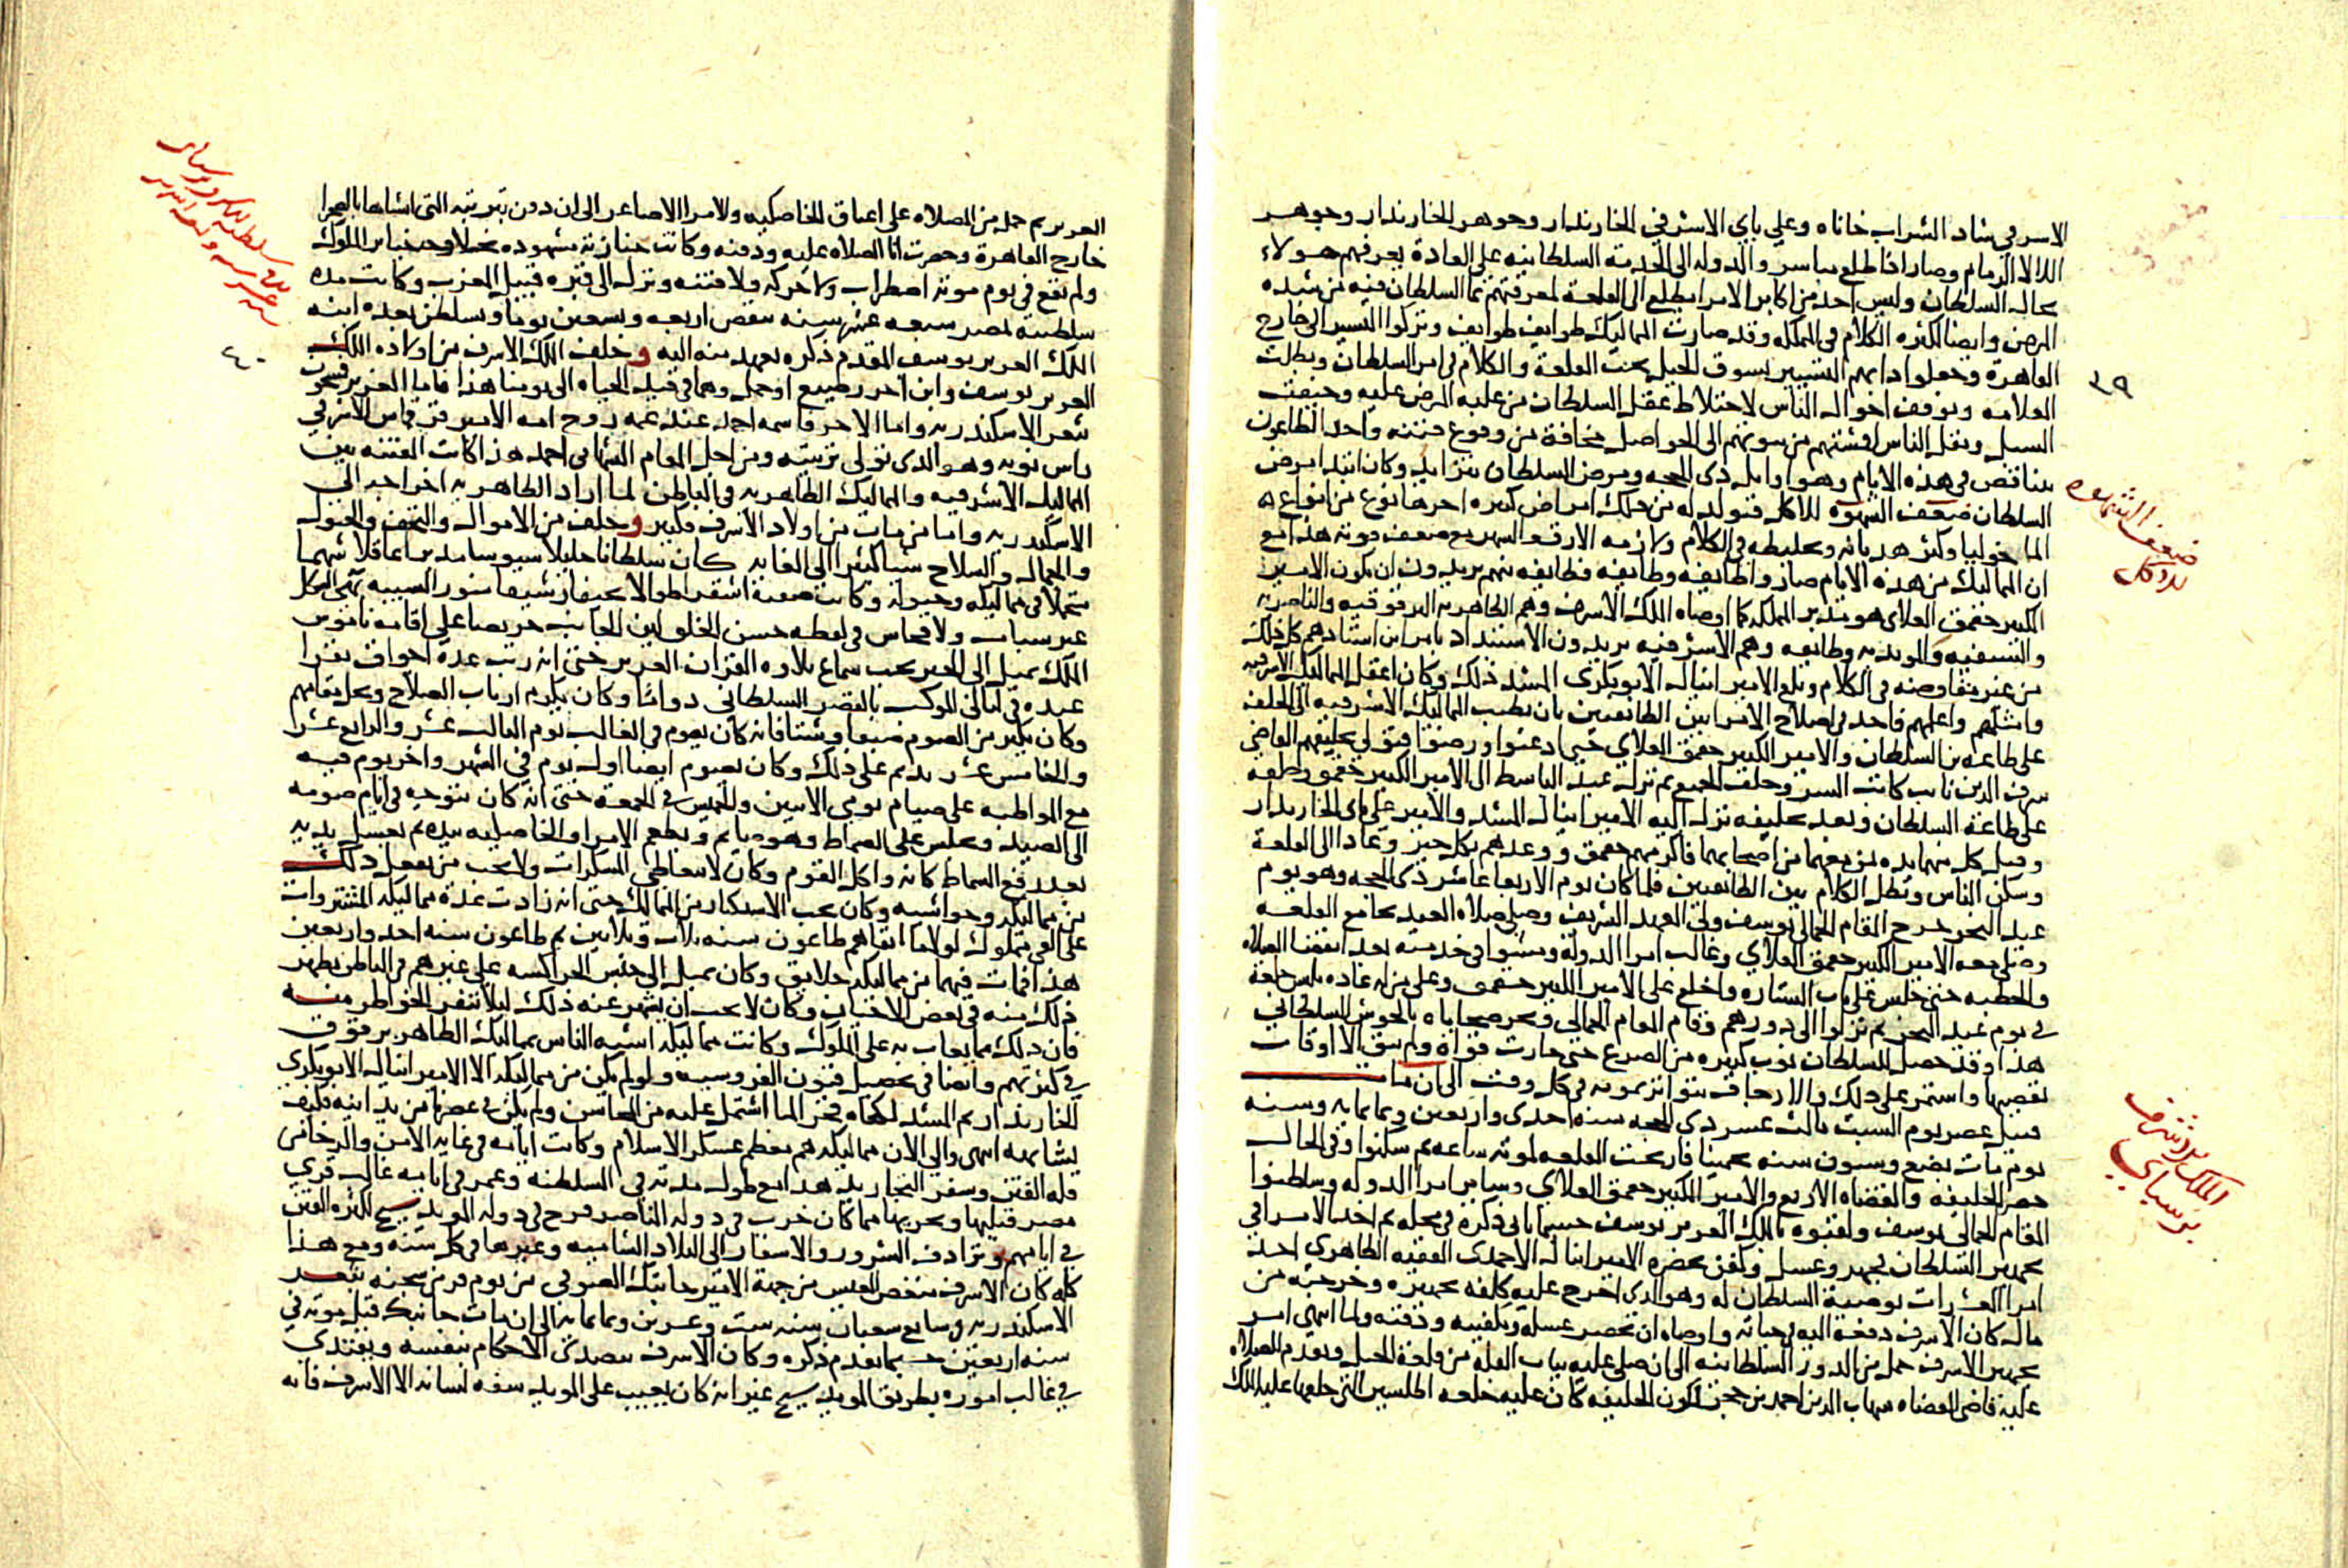 الاسرفي شاد الشراب خاناه وعلي باي الاشرفي الخازندار وجوهر الخازندار وجوهر
اللالا الزمام وصار اذا طلع مباسر والدوله الى الخدمة السلطانيه على العادة يعرفهم هولاء
بحاله السلطان وليس احد من اكابر الامرا يطلع الى القلعة لمعرفتهم بما السلطان فيه من شده
المرض وايضا لكثره الكلام في المملكه وقد صارت المماليك طوايف طوايف وتركوا التسيير الى خارج
القاهرة وجعلوا دابهم التسيير بسوق الخيل تحت القلعة والكلام في امر السلطان وبطلت
٣٩
العلامه وتوقف احوال الناس لاختلاط عقل السلطان من غلبه المرض عليه وخيفت
السبل ونقل الناس اقشتهم من بيوتهم الى الحواصل مخافة من وقوع فتنه واخذ الطاعون
يتناقص في هذه الايام وهو اوايل ذى الحجه ومرض السلطان يتزايد وكان ابتدا مرض
ضعف الشهوه
للاكل
السلطان ضعف الشهوه للاكل فتولد له من ذلك امراض كثيره اخرها نوع من انواع
الماخوليا وكثر هديانه وتخليطه في الكلام ولازمه الارق والسهر مع ضعف قوته هذا مع
ان المماليك من هذه الايام صاروا طايفه وطايفه فطايفه منهم يريدون ان يكون الامير
الكبير جقمق العلاى هو مدبر المملكه كما اوصاه الملك الاشرف وهم الظاهريه البرقوقيه والناصريه
والشيخيه والمويديه وطايفه وهم الاشرفيه يريدون الاستبداد بامر ابن استادهم كل ذلك
من غير مفاوضه في الكلام وبلغ الامير اينال الابوبكرى المشد ذلك وكان اعقل المماليك الاشرفيه
وامثلهم واعلمهم فاخذ في اصلاح الامر بين الطايفتين بان يطيب المماليك الاشرفيه الى الحلف
على طاعه بن السلطان والامير الكبير جقمق العلاي حتى اذعنوا ورضوا فتولى تحليفهم القاضي
شرف الدين نايب كاتب السر وحلف الجميع ثم نزل عبد الباسط الى الامير الكبير جقمق وحلفه
على طاعة السلطان وبعد تحليفه نزل اليه الامير اينال المشد والامير علي باي الخازندار
وقبل كل منهما يده من معهما من اصحابهما فاكرمهم جقمق ووعدهم بكل خير وعادا الى القلعة
وسكن الناس وبطل الكلام بين الطايفتين فلما كان يوم الاربعا عاشر ذى الحجه وهو يوم
عيد النحر خرج المقام الجمالى يوسف ولي العهد الشريف وصلى صلاه العيد بجامع القلعه
وصلى معه الامير الكبير جقمق العلاي وغالب امرا الدولة ومشوا في خدمته بعد انقضا الصلاه
والخطبه حتى جلس على باب الستاره واخلع على الامير الكبير جقمق وعلى من له عاده بلبس خلعة
في يوم عيد النحر ثم نزلوا الى دورهم وقام المقام الجمالي ونحر ضحاياه بالحوش السلطاني
هذا وقد حصل للسلطان نوب كثيره من الصرع حتى خارت قواه ولم يبق الا اوقات
تقضيها واستمر على ذلك والارجاف يتواتر بموته في كل وقت الى ان مات
الملك الاشرف
برسباي
قبيل عصر يوم السبت ثالث عشر ذى الحجه سنه احدى واربعين وثمانمايه وسنه
يوم مات بضع وستون سنه تخمينا فارتجت القلعه لموته ساعه ثم سكنوا وفي الحال
حضر الخليفه والقضاه الاربع والامير الكبير جقمق العلاي وساير امرا الدوله وسلطنوا
المقام الجمالى يوسف ولقبوه بالملك العزيز يوسف حسبما ياتي ذكره في محله ثم اخذ الامرا في
تجهيز السلطان فجهز وغسل وكفن بحضره الامير اينال الاحمدى الفقيه الظاهري احد
امرا العشرات بوصية السلطان له وهو الذى اخرج عليه كلفه تجهيزه وخرجته من
مال كان الاشرف دفعه اليه في حياته واوصاه ان يحضر غسله وتكفينه ودفنه ولما انتهى امر
تجهيز الاشرف حمل من الدور السلطانيه الى ان صلى عليه بباب القله من قلعة الجبل وتقدم للصلاه
عليه قاضي القضاه شهاب الدين احمد بن حجر لكون الخليفه كان عليه خلعه اطلسين التى خلعها عليه الملك
العزيز ثم حمل من المصلاه على اعناق الخاصكيه والامرا الاصاغر الى ان دفن بتربته التى انشاها بالصحرا
خارج القاهرة وحضرت انا الصلاه عليه ودفنه وكانت جنازته مشهوده بخلاف جنايز الملوك
ولم يقع في يوم موته اضطراب ولا حركه ولا فتنه ونزل الى قبره قبيل المغرب وكانت مده
سلطنته بمصر سبعه عشر سنه تنقص اربعه وتسعين يوما وتسلطن بعده ابنه
الملك العزيز يوسف المقدم ذكره بعهد منه اليه وخلف الملك الاشرف من اولاده الملك
٤٠
العزيز يوسف وابن اخر رضيع او حمل وهما في قيد الحياه الى يومنا هذا فاما العزيز فسجون
بثغر الاسكندريه واما الاخر فاسمه احمد عند عمه زوج امه الامير قرقماس الاشرفي
راس نوبه وهو الذى تولى تربيته ومن اجل المقام الشهابي احمد هذا كانت الفتنه بين
المماليك الاشرفيه والمماليك الظاهريه في الباطن لما اراد الظاهريه اخراجه الى
الاسكندريه واما من مات من اولاد الاشرف فكثير وخلف من الاموال والتحف والخيول
والجمال والسلاح شيا كثيرا الى الغايه كان سلطانا جليلا سيوسا مدبرا عاقلا شهما
متجملا في مماليكه وخيوله وكانت صفته اشقر طوالا نحيفا رشيقا منور الشيبه بهي الشكل
غير سباب ولا فحاش في لفظه حسن الخلق لين الجانب حريصا على اقامه ناموس
الملك يميل الى الخير يحب سماع تلاوه القران العزيز حتى انه رتب عدة اجواق تقرا
عنده في ليالى المواكب بالقصر السلطاني دواما وكان يكرم ارباب الصلاح ويجل مقامهم
وكان يكثر من الصوم صيفا وشتا فانه كان يصوم في الغالب يوم الثالث عشر والرابع عشر
والخامس عشر يديم على ذلك وكان يصوم ايضا اول يوم في الشهر واخر يوم فيه
مع المواظبه على صيام يومي الاثنين والخميس في الجمعة حتى انه كان يتوجه في ايام صومه
الى الصيد ويجلس على السماط وهو صايم ويطعم الامرا والخاصكيه بيده ثم يغسل يديه
بعد رفع السماط كانه واكل القوم وكان لا يتعاطى المسكرات ولا يحب من يفعل ذلك
من مماليكه وحواشيه وكان يحب الاستكثار من المماليك حتى انه زادت عدة مماليكه المشتروات
على الفي مملوك لولا ما افناهم طاعون سنه ثلاث وثلاثين ثم طاعون سنه احد واربعين
هذا فمات فيهما من مماليكه خلايق وكان يميل الى جنس الجراكسه على غيرهم في الباطن يظهر
ذلك منه في بعض الاحيان وكان لا يحب ان يشهر عنه ذلك ليلا تنفر الخواطر منه
فان ذلك مما يعاب به على الملوك وكانت مماليكه اشبه الناس بمماليك الظاهر برقوق
في كثرتهم وايضا في تحصيل فنون الفروسيه ولو لم يكن من مماليكه الا الامير اينال الابوبكرى
الخازندار ثم المشد لكفاه فخرا لما اشتمل عليه من المحاسن ولم يكن في عصرنا من يدانيه فكيف
يشابهه انتهى والى الان مماليكه هم معظم عسكر الاسلام وكانت ايامه في غايه الامن والرخا من
قله الفتن وسفر التجاريد هذا مع طول مدته في السلطنه وعمر في ايامه غالب قري
مصر قبليها وبحريها مما كان خرب في دوله الناصر فرج في دوله المويد شيخ لكثره الفتن
في ايامهم وترادف الشرور والاسفار الى البلاد الشاميه وغيرها في كل سنه ومع هذا
كله كان الاشرف منغص العيش من جهة الامير جانبك الصوفي من يوم فر من سجنه بثغر
الاسكندريه في سابع شعبان سنه ست وعشرين وثمانمايه الى ان مات جانبك قبل موته في
سنه اربعين حسبما تقدم ذكره وكان الاشرف يتصدى للاحكام بنفسه ويقتدى
في غالب اموره بطريق المويد شيخ غير انه كان يعيب على المويد سفه لسانه الا الاشرف فانه